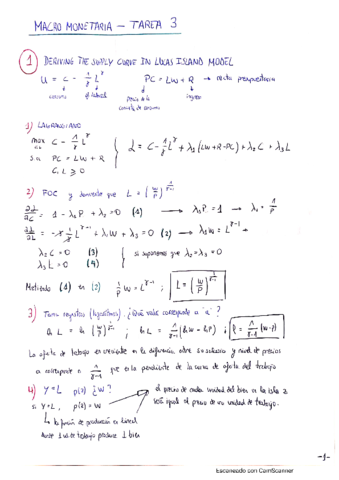 MACRO MONETARIA - TAREA 3
1 DERIVING THE SUPPLY CURVE IN LUCAS ISLAND MODEL
U = C - 1/γ L^γ PC = LW + R → recta presupuestaria
consumo precio de la ingreso
canasta de consumo
1) LAGRANGIANO
max C - 1/γ L^γ
s.a PC = LW + R
C, L ⩾ 0
L = C - 1/γ L^γ + λ1 (LW + R - PC) + λ2 C + λ3 L
2) FOC y demuestre que L = (W/P)^1/γ-1
∂L/∂C = 1 - λ1P + λ2 = 0 (1) → λ1P = 1 → λ1 = 1/P
∂L/∂L = -γ 1/γ L^γ-1 + λ1W + λ3 = 0 (2) → λ1W = L^γ-1
λ2 C = 0 (3)
λ3 L = 0 (4)
si suponemos que λ2 = λ3 = 0
Metiendo (1) en (2) 1/P W = L^γ-1 ; L = (W/P)^1/γ-1
3) Tomar registros (logaritmos). ¿Qué valor corresponde a "a"?
ln L = ln (W/P)^1/γ-1 ; ln L = 1/γ-1 (ln W - ln P) ; l = 1/γ-1 (w-p)
La oferta de trabajo es creciente en la diferencia entre salario y nivel de precios
a corresponde a 1/γ-1 que es la pendiente de la curva de oferta del trabajo
4) Y = L P(z) ¿W?
si Y = L, P(z) = W
el precio de cada unidad del bien en la isla z
será igual al precio de una unidad de trabajo.
la función de producción es lineal
donde 1 ud de trabajo produce 1 bien
-1-
Escaneado con CamScanner